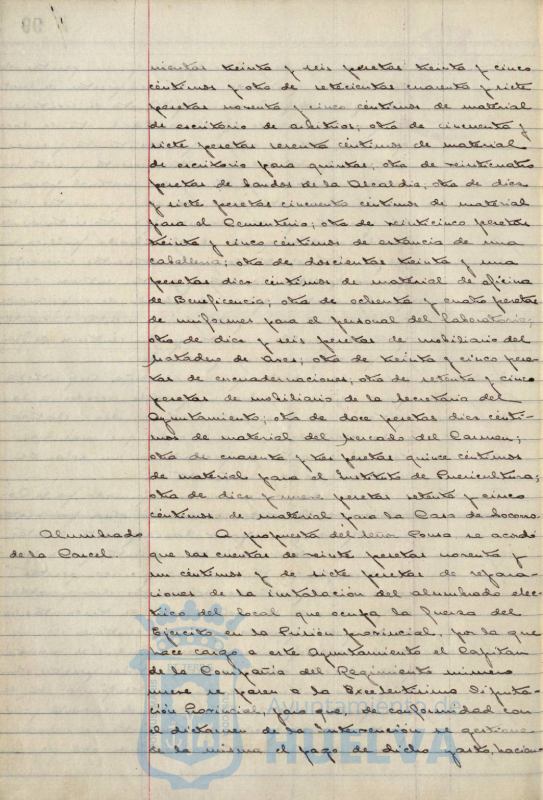 nientas treinta y seis pesetas treinta y cinco
céntimos y otra de setecientas cuarenta y siete
pesetas noventa y cinco céntimos de material
de escritorio de arbitrios; otra de cincuenta y
siete pesetas sesenta céntimos de material
de escritorio para quintas; otra de veinticuatro
pesetas de bandos de la Alcaldia; otra de diez
y siete pesetas cincuenta céntimos de material
para el Cementerio; otra de veinticinco pesetas
treinta y cinco céntimos de estancia de una
caballeria; otra de doscientas treinta y una
pesetas diez céntimos de material de oficina
de Beneficencia; otra de ochenta y cuatro pesetas
de uniformes para el personal del Laboratorio;
otra de diez y seis pesetas de mobiliario del
Matadero de Aves; otra de treinta y cinco pese-
tas de encuadernaciones; otra de setenta y cinco
pesetas de mobiliario de la Secretaria del
Ayuntamiento; otra de doce pesetas diez cénti-
mos de material del Mercado del Carmen;
otra de cuarenta y tres pesetas quince céntimos
de material para el Instituto de Puericultura;
otra de diez y nueve pesetas setenta y cinco
céntimos de material para la Casa de Socorro.
Alumbrado A propuesta del señor Pousa se acordó
de la Carcel. que las cuentas de veinte pesetas noventa y
un céntimos y de siete pesetas de repara-
ciones de la instalación del alumbrado eléc-
trico del local que ocupa la fuerza del
Ejército en la Prisión provincial, por la que
hace cargo a este Ayuntamiento el Capitan
de la Compañia del Regimiento número
nueve se pasen a la Excelentísima Diputa-
ción Provincial, para que, de conformidad con
el dictamen de la Intervención se gestione
de la misma el pago de dicho gasto, hacien-
Ayuntamiento de
HUELVA